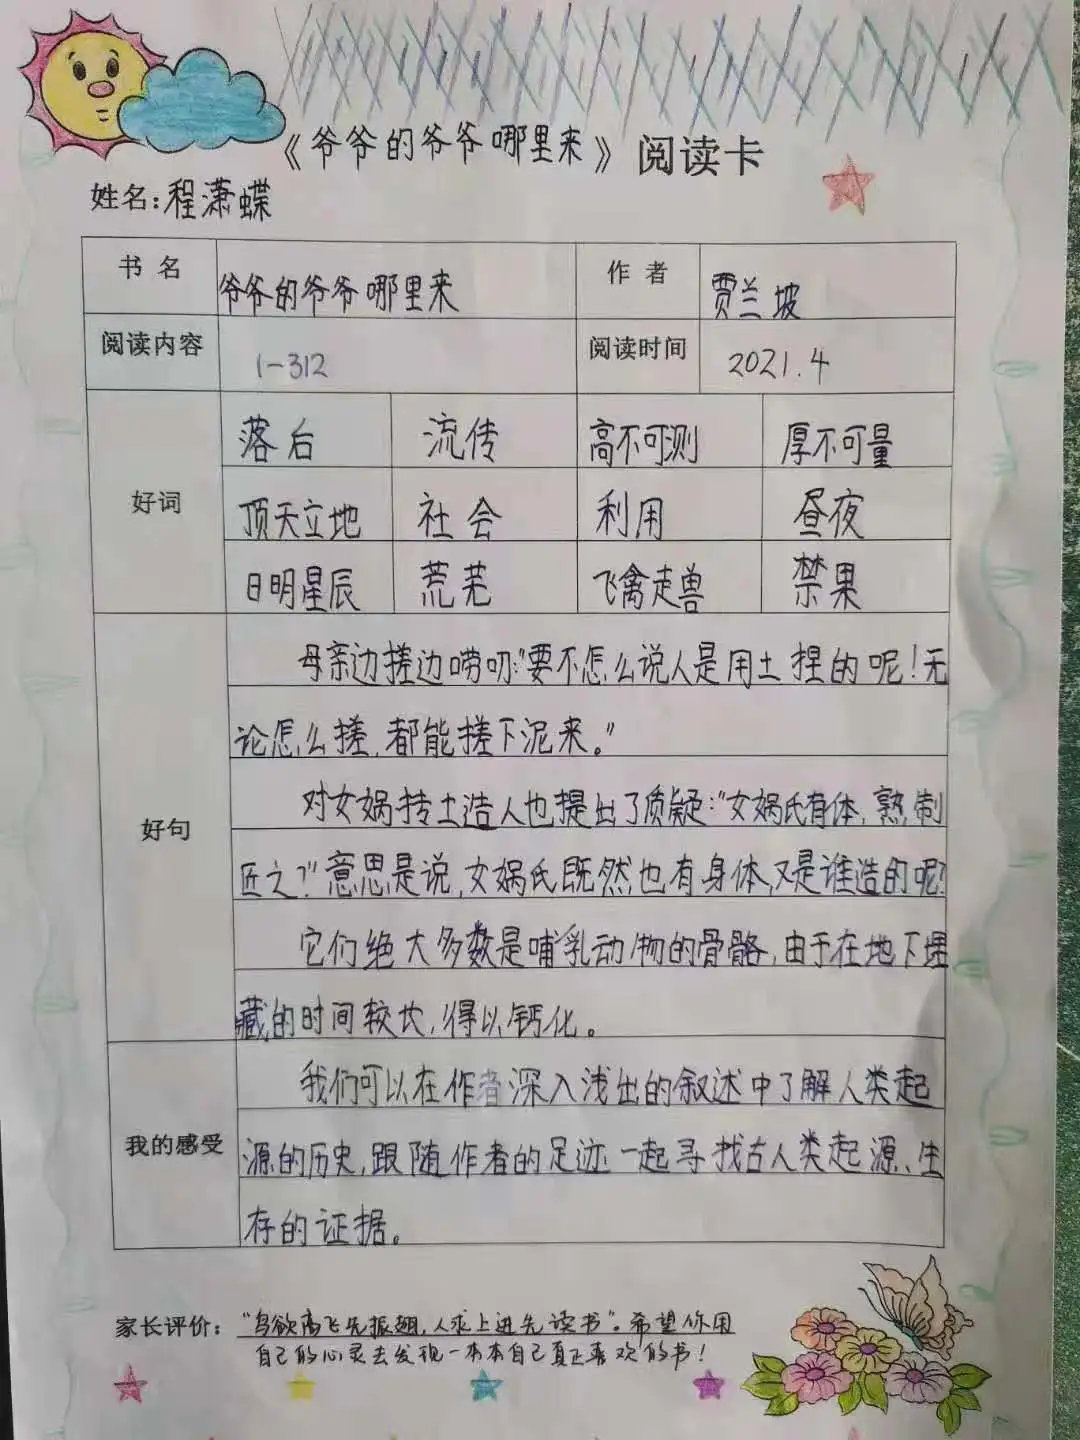 《爷爷的爷爷哪里来》阅读卡
姓名:程潇蝶
书名 爷爷的爷爷哪里来 作者 贾兰坡
阅读内容 1-312 阅读时间 2021.4
好词
落后 流传 高不可测 厚不可量
顶天立地 社会 利用 昼夜
日明星辰 荒芜 飞禽走兽 禁果
好句
母亲边搓边唠叨:"要不怎么说人是用土捏的呢!无
论怎么搓,都能搓下泥来。"
对女娲抟土造人也提出了质疑:"女娲氏有体,熟制
匠之?"意思是说,女娲氏既然也有身体,又是谁造的呢?
它们绝大多数是哺乳动物的骨骼,由于在地下埋
藏的时间较长,得以钙化。
我的感受
我们可以在作者深入浅出的叙述中了解人类起
源的历史,跟随作者的足迹一起寻找古人类起源、生
存的证据。
家长评价:"鸟欲高飞先振翅,人求上进先读书"。希望你用
自己的心灵去发现一本本自己真正喜欢的书!